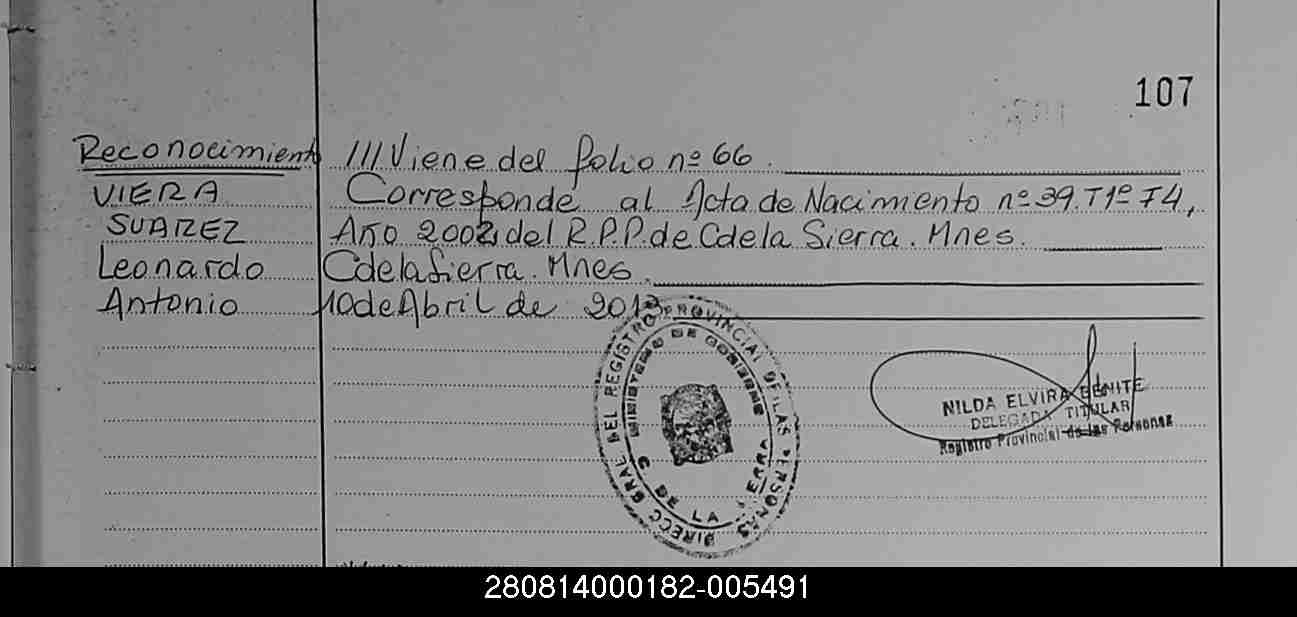 107
Reconocimiento /// Viene del folio nº 66.
VIERA Corresponde al Acta de Nacimiento nº 39. T1º F4,
SUAREZ Año 2002, del R.P.P. de C de la Sierra. Mnes.
Leonardo C de la Sierra. Mnes.
Antonio 10 de Abril de 2013
DIRECC GRAL DEL REGISTRO PROVINCIAL DE LAS PERSONAS
MINISTERIO DE GOBIERNO
C. DE LA SIERRA
NILDA ELVIRA BENITE
DELEGADA TITULAR
Registro Provincial de las Personas
280814000182-005491